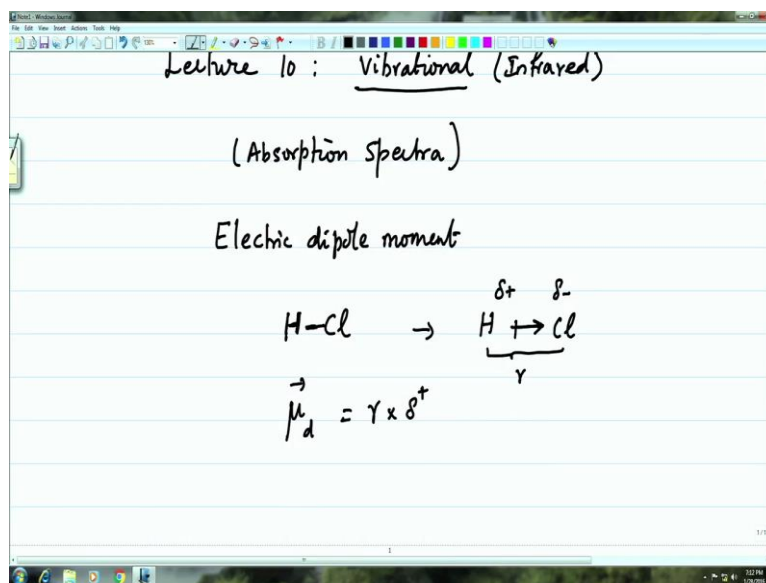 Note1 - Windows Journal
File Edit View Insert Actions Tools Help
Lecture 10 : Vibrational (Infrared)
(Absorption Spectra)
Electric dipole moment
δ+ δ-
H-Cl → H ↦ Cl
r
μ⃗d = r x δ+
1/1
1
7:12 PM